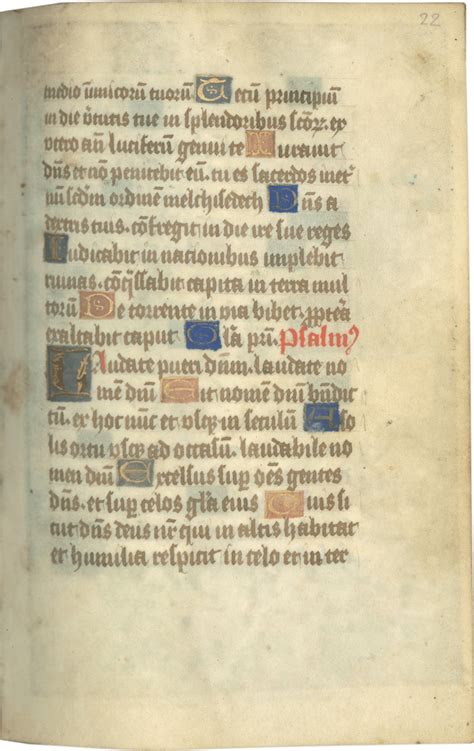 22
medio inimicorū tuorū Tecū principiū
in die v̄tutis tue in splendoribus scōꝝ. ex
vtero an̄ luciferū genui te Iurauit
dn̄s et nō penitebit eū. tu es sacerdos in eter
nū scd̄m ordinem melchisedech Dn̄s a
dextris tuis. cōfregit in die ire sue reges
Iudicabit in nationibus implebit
ruinas. cōq̄ssabit capita in terra mul
torū De torrente in via bibet. ꝓpterea
exaltabit caput Gl̄a pr̄i. Psalmꝰ
Laudate pueri dn̄m. laudate no
men dn̄i Sit nomē dn̄i bn̄dic
tū. ex hoc nūc et vsq̄ in seculū A so
lis ortu vsq̄ ad occasū. laudabile no
men dn̄i Excelsus sup̄ om̄s gentes
dn̄s. et sup̄ celos gl̄a eius Quis si
cut dn̄s deus nr̄ qui in altis habitat
et humilia respicit in celo et in ter